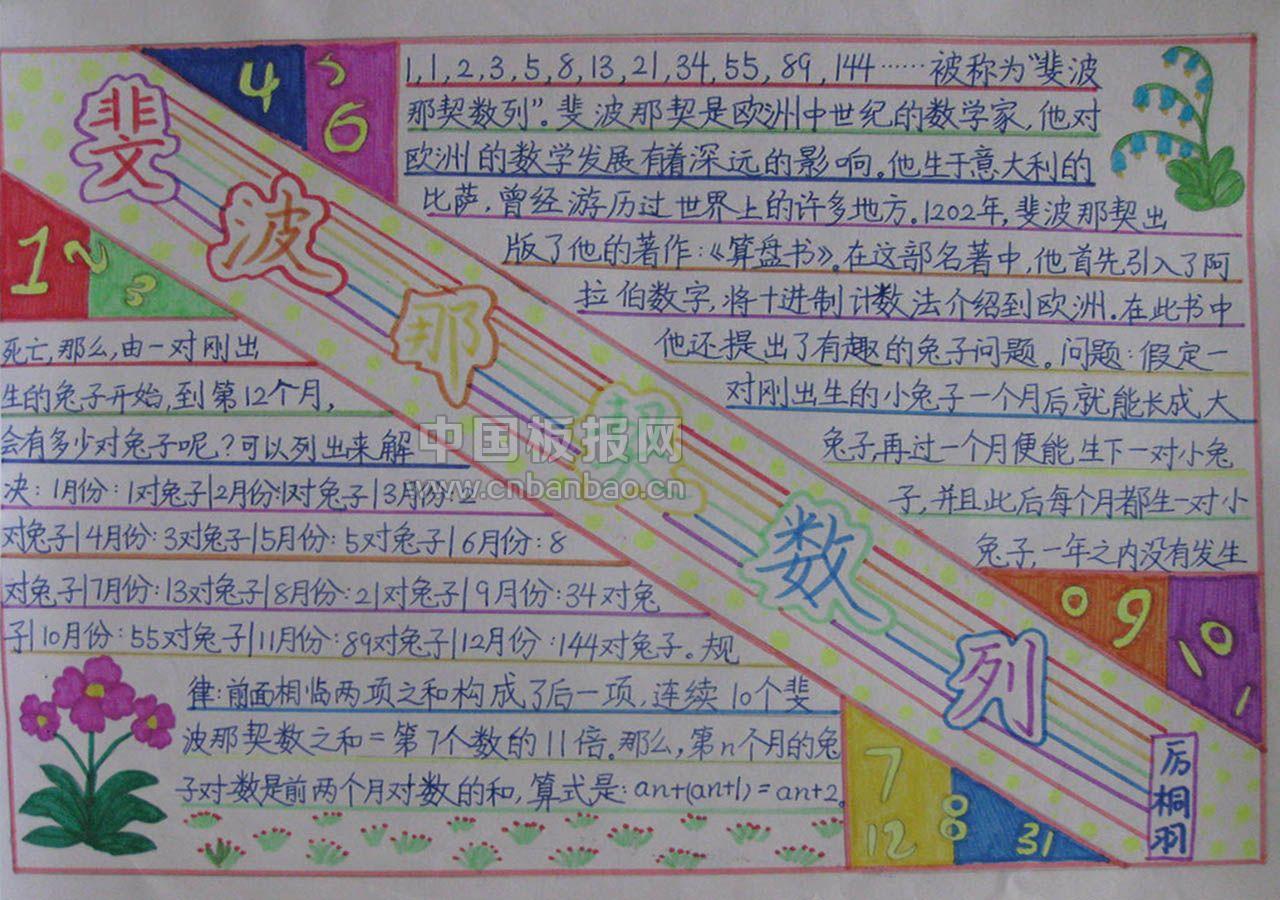 斐波那契数列
4
5
6
1
2
3
1,1,2,3,5,8,13,21,34,55,89,144……被称为“斐波
那契数列”。斐波那契是欧洲中世纪的数学家,他对
欧洲的数学发展有着深远的影响。他生于意大利的
比萨,曾经游历过世界上的许多地方。1202年,斐波那契出
版了他的著作:《算盘书》。在这部名著中,他首先引入了阿
拉伯数字,将十进制计数法介绍到欧洲。在此书中
他还提出了有趣的兔子问题。问题:假定一
对刚出生的小兔子一个月后就能长成大
兔子,再过一个月便能生下一对小兔
子,并且此后每个月都生一对小
兔子,一年之内没有发生
死亡,那么,由一对刚出
生的兔子开始,到第12个月,
会有多少对兔子呢?可以列出来解
决:1月份:1对兔子|2月份:1对兔子|3月份:2
对兔子|4月份:3对兔子|5月份:5对兔子|6月份:8
对兔子|7月份:13对兔子|8月份:21对兔子|9月份:34对兔
子|10月份:55对兔子|11月份:89对兔子|12月份:144对兔子。规
律:前面相临两项之和构成了后一项,连续10个斐
波那契数之和=第7个数的11倍。那么,第n个月的兔
子对数是前两个月对数的和,算式是:an+(an+1)=an+2。
0
9
10
1
7
12
8
31
厉桐羽
中国板报网
www.cnbanbao.cn